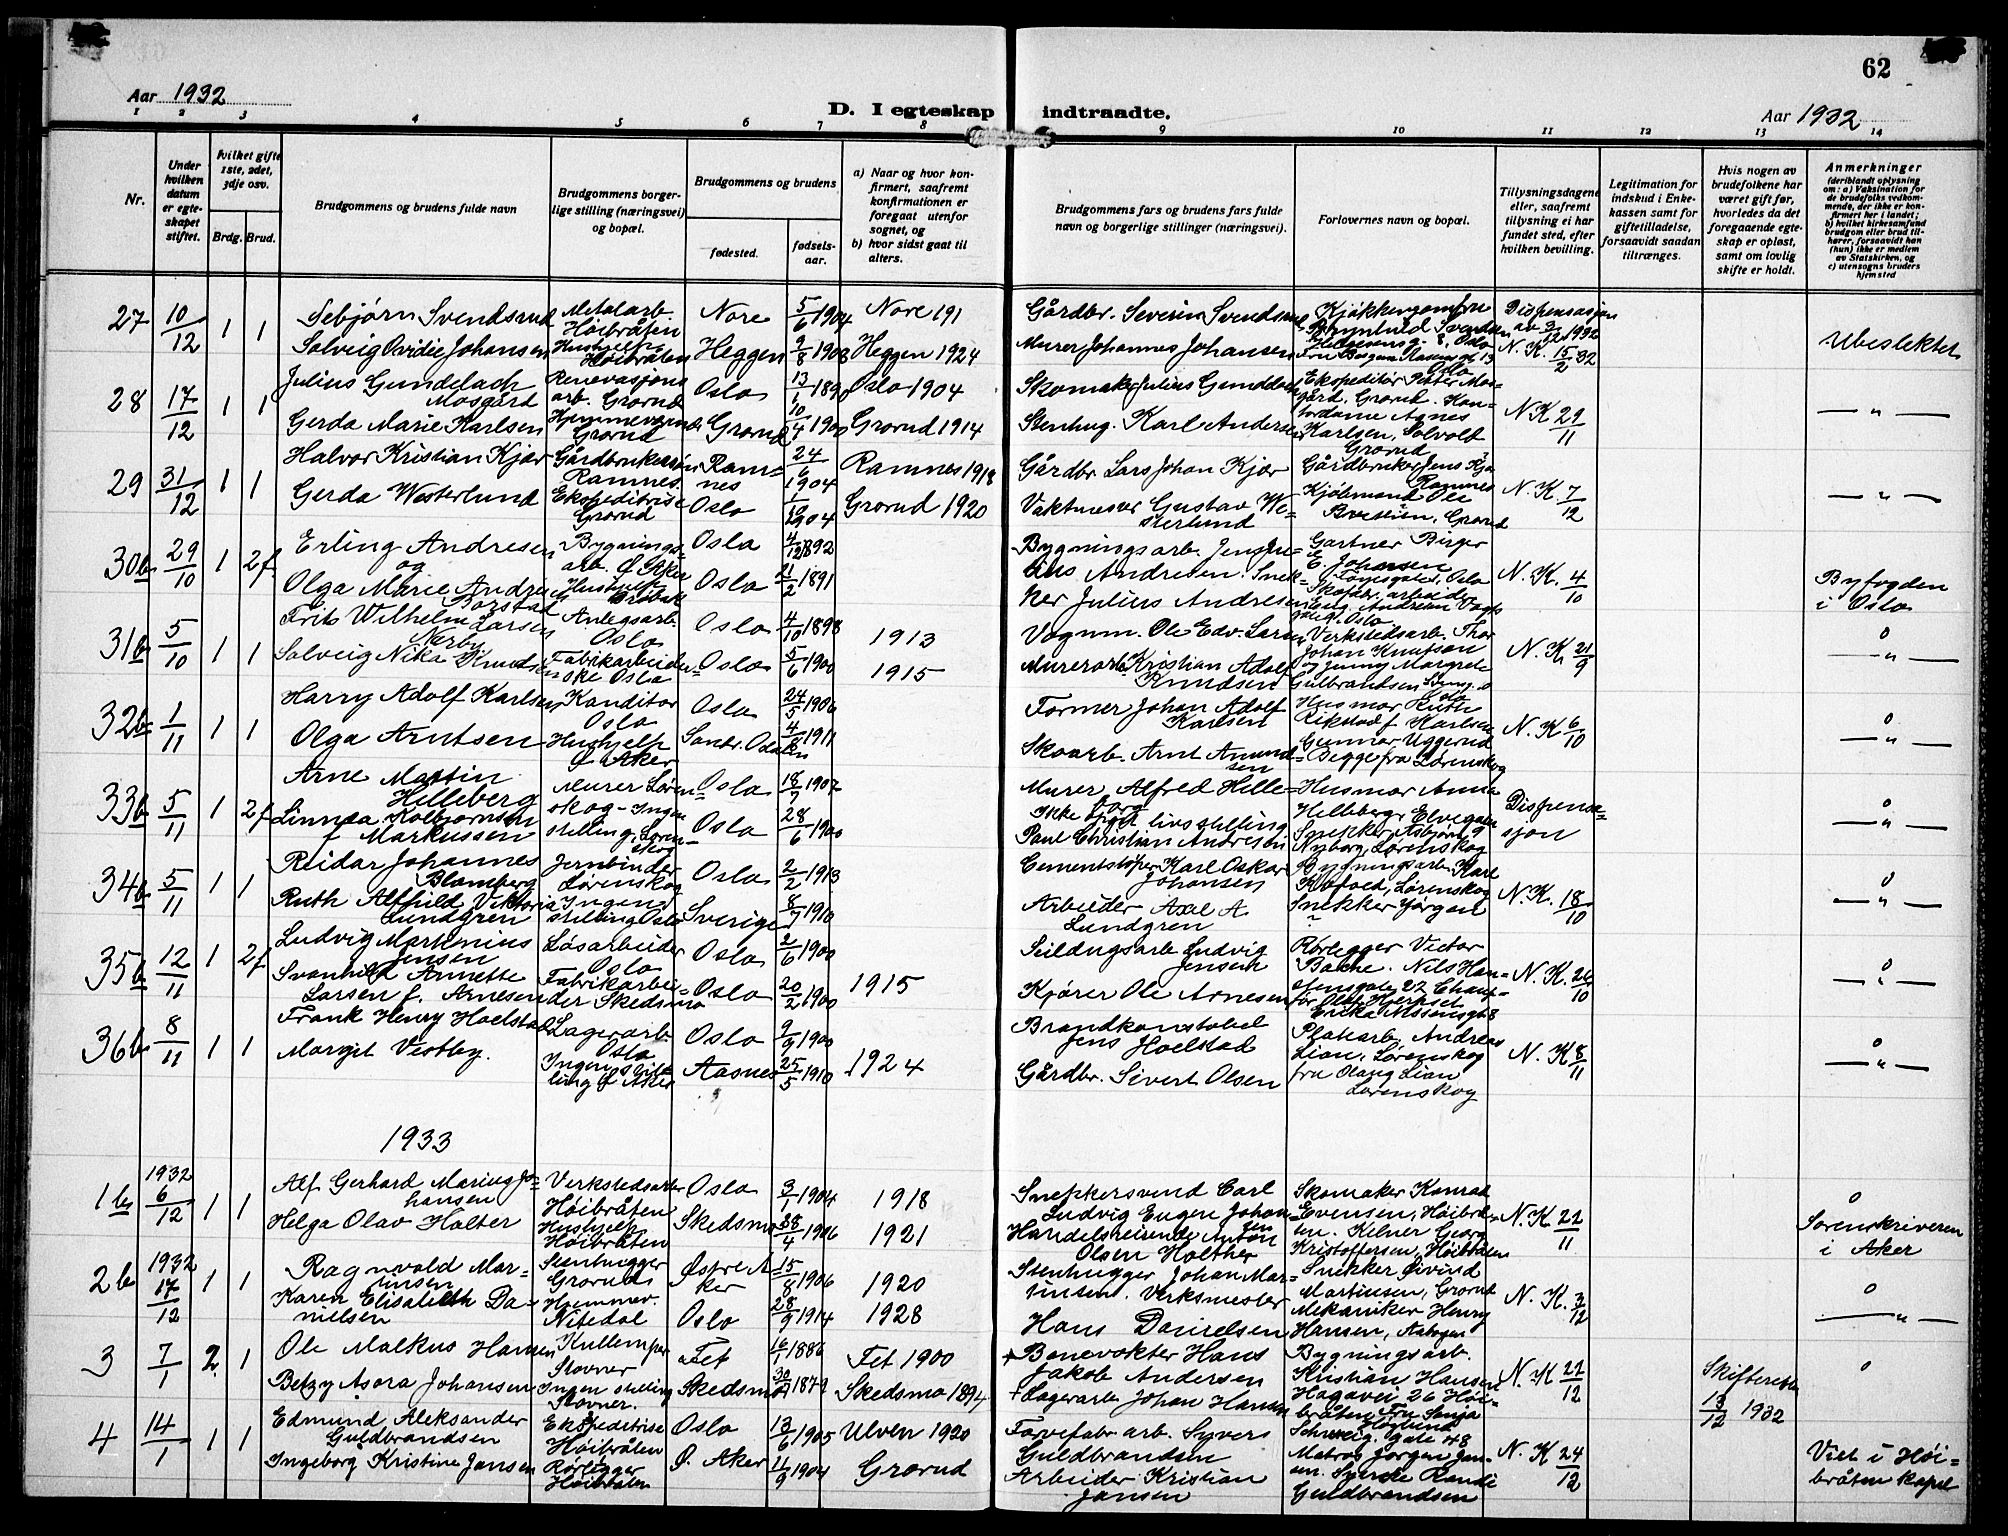 62
Aar 1932
D. I egteskap indtraadte.
Aar 1932
1 2 3 4 5 6 7 8 9 10 11 12 13 14
Nr.
Under hvilken datum er egteskapet stiftet.
hvilket gifte 1ste, 2det, 3dje osv.
Brdg. Brud.
Brudgommens og brudens fulde navn
Brudgommens borgerlige stilling (næringsvei) og bopæl.
Brudgommens og brudens
fødested.
fødselsaar.
a) Naar og hvor konfirmert, saafremt konfirmationen er foregaat utenfor sognet, og
b) hvor sidst gaat til alters.
Brudgommens fars og brudens fars fulde navn og borgerlige stillinger (næringsvei).
Forlovernes navn og bopæl.
Tillysningsdagene eller, saafremt tillysning ei har fundet sted, efter hvilken bevilling.
Legitimation for indskud i Enkekassen samt for giftetilladelse, forsaavidt saadan tiltrænges.
Hvis nogen av brudefolkene har været gift før, hvorledes da det foregaaende egteskap er opløst, samt om lovlig skifte er holdt.
Anmerkninger
(deriblandt oplysning om: a) Vaksination for de brudefolks vedkommende, der ikke er konfirmert her i landet; b) hvilket kirkesamfund brudgom eller brud tilhører, forsaavidt han (hun) ikke er medlem av Statskirken, og c) utensogns bruders hjemsted
27 10/12 1 1 Sebjørn Svendsrud Metalarb. Høibråten Nore 5/6 1904 Nore 191 Gårdbr. Severin Svendsrud Dispensasjon
Solveig Ovidie Johansen Hushjelp Høibråten Heggen 9/8 1908 Heggen 1924 Murer Johannes Johansen N. K. 15/2 32 Ubeslektet
28 17/12 1 1 Julius Gundelach Mosgård Renovasjonsarb. Grorud Oslo 13/1 Oslo 1904 Skomaker Julius
Gerda Marie Karlsen Grorud Grorud Grorud 1914 Stenhug. Karl Andersen Karlsen, Solvolt Grorud N K 29/11 — " —
29 31/12 1 1 Halvor Kristian Kjær Gårdbrukersøn Ramnes. Ramnes 24/6 1904 Ramnes 1918 Gårdbr. Lars Johan Kjær Gårdbruker Jens Kjær Ramnes
Gerda Westerlund Ekspeditrise Grorud Oslo 1904 Grorud 1920 Vaktmester Gustav Westerlund Kjøbmand Ole Grorud N. K. 7/12 — " —
30b 29/10 1 2f. Erling Andresen og Bygningsarb. Ø. Aker Oslo 4/12 1892 Bygningsarb. Andresen. Gartner Birger E. Johansen
Olga Marie Andresen Hushjelp Oslo 21/2 1891 Snekker Julius Andresen N. K. 4/10 Byfogden i Oslo
31b 5/10 1 1 Frits Wilhelm Larsen Nærby Anlegsarb. Oslo Oslo 4/10 1898 1913 Vognm. Ole Edv. Larsen Verkstedsarb. Thor Johan Knutson
Solveig Nika Knudsen Fabrikarbeiderske Oslo Oslo 5/6 1900 1915 Murerarb. Kristian Adolf Knudsen og Jenny Margrete Gulbrandsen N. K. 21/9 — " —
32b 1/11 1 1 Harry Adolf Karlsen Konditor Oslo Oslo 24/5 1906 Former Johan Adolf Karlsen Husmor Ruth Rikstad f. Karlsen
Olga Arntsen Hushjelp Ø. Aker 1911 Skoarb. Arnt Amundsen Gunnar Uggerud Begge fra Lørenskog N. K 6/10 — " —
33b 5/11 1 2f Arne Martin Helleberg Murer Lørenskog - Oslo 18/7 1907 Murer Alfred Helleberg Husmor Anna Helleberg, Elvegaten
Linnea Kolbjørnsen f. Markussen Ingen stilling, Lørenskog Oslo 28/6 1900 Ikke livsstilling. Paul Christian Andresen Snekker Asbjørn Nyborg, Lørenskog Dispensasjon — " —
34b 5/11 1 1 Reidar Johannes Blomberg Jernbinder Lørenskog Oslo 2/2 1913 Cementstøper Karl Oskar Johansen Bygningsarb. Karl Kofoed, Lørenskog
Ruth Alfhild Viktoria Lundgren Ingen stilling Oslo Sverige 8/7 1910 Arbeider Axel A. Lundgren Snekker Jørgen ? N. K. 18/10 — " —
35b 12/11 1 2f Ludvig Martinius Jensen Løsarbeider Oslo Oslo 2/6 1900 Seildugsarb Ludvig Jensen Rørlegger Victor Bakke. Nils Hansensgate 22
Svanhild Annette Larsen f. Arnesen Fabrikarbeider Skedsmo Oslo 20/2 1900 1915 Kjører Ole Arnesen N. K. 26/10 — " —
36b 8/11 1 1 Frank Henry Hoelstad Lagerarb. Oslo Oslo 9/9 1900 Brandkonstabel Jens Hoelstad Platearb. Andreas Lian, Lørenskog
Margit Vestby. Ingen stilling Ø Aker Aasnes 25/5 1910 1924 Gårdbr. Sivert Olsen fru Olaug Lian Lørenskog N. K 8/11 — " —
1933
1b 1932 6/12 1 1 Alf Gerhard Marius Johansen Verkstedsarb Høibråten Oslo 3/1 1904 1918 Snekkersvend Carl Ludvig Eugen Johansen Skomaker Konrad Evensen, Høibråten.
Helga Olav Holter Hushjelp Høibråten Skedsmo 28/4 1906 1921 Handelsreisende Anton Olsen Holther Kelner Georg Kristoffersen, Høibråten N. K. 22/11 Sorenskriveren i Aker
2b 1932 17/12 1 1 Ragnvald Martinsen Stenhugger Grorud Østre Aker 15/8 1906 1920 Stenhugger Johan Martinsen. Snekker Øivind Martinsen, Grorud
Karen Elisabeth Danielsen Hjemmev. Nitedal Oslo 28/9 1914 1928 Verksmester Hans Danielsen Mekaniker Henry Hansen, N. K. 3/12 — " —
3 7/1 2. 1 Ole Malkus Hansen Kullemper Stovner Fet 1886 Fet 1900 + Banevokter Hans Jakob Andersen Bygningsarb. Kristian Hansen Hagavei 26 Høibråten
Betzy Asora Johansen Ingen stilling Stovner. Skedsmo 1879 Skedsmo 1894 + Lagerarb Johan Hansen N. K 22/12 Skifterett 13/12 1932
4 14/1 1 1 Edmund Aleksander Guldbrandsen Ekspeditrise Høibråten Oslo 13/6 1905 Ulven 1920 Farvefabr arb. Syvers Guldbrandsen Matros Jørgen Jansen.
Ingeborg Kristine Jansen Rørlegger Høibråten Ø. Aker 1904 Grorud Arbeider Kristian Jansen Syerske Randi Guldbrandsen N. K 24/12 Viet i Høibråten kapel